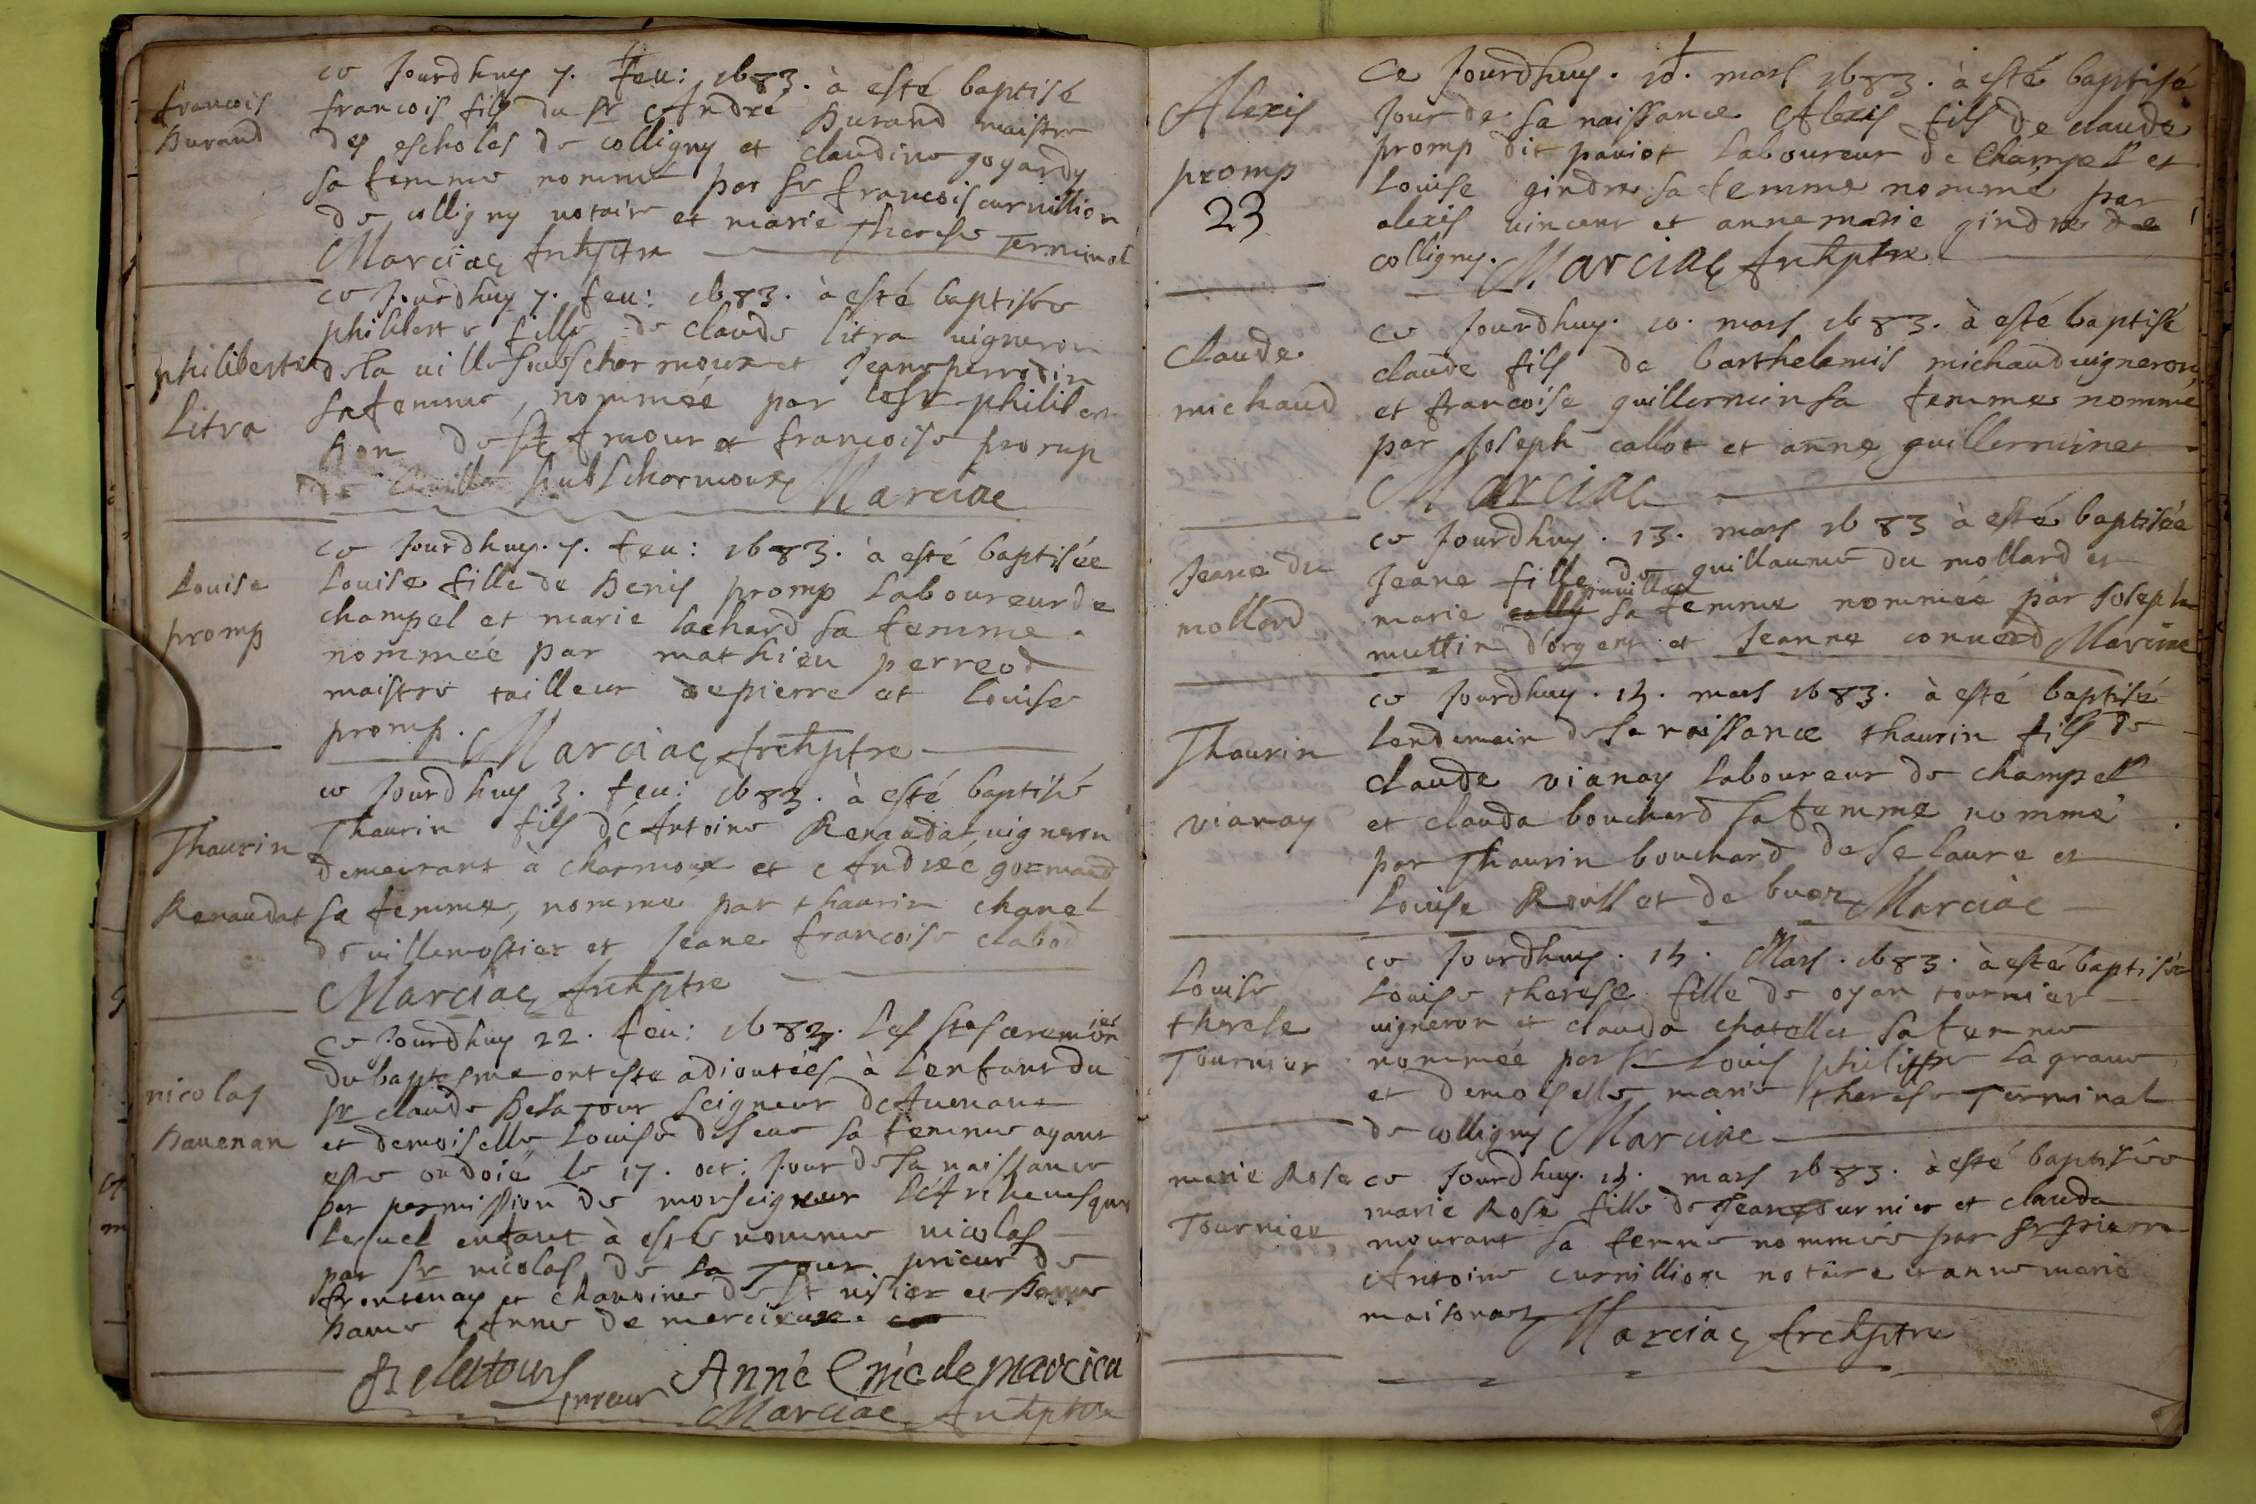 francois
Durand
ce Jourdhuy 7. feu: 1683. à esté baptisé
francois fils du sr André Durand maistre
des escholes de colligny et claudine goyardy
sa femme nommé par sr francois curnillion
de colligny notaire et marie Therese Terminal
Marciac Archptre
philiberte
Litra
ce Jourdhuy 7. feu: 1683. à esté baptisée
philiberte fille de claude litra uigneron
de la uille soubs charmoux et Jeane perrodin
sa femme, nommée par le sr philibert
de st Amour et francoise promp
de uille soubs charmoux Marciac
Louise
promp
ce Jourdhuy. 7. feu: 1683. à esté baptisée
Louise fille de Denis promp Laboureur de
champel et marie lachard sa femme.
nommée par mathieu perreod
maistre tailleur de pierre et Louise
promp. Marciac Archptre
Thaurin
Renaudat
ce Jourdhuy 3. feu: 1683. à esté baptisé
Thaurin fils de Antoine Renaudat uigneron
demeurant à charmoux et Andreé gormand
sa femme, nommé par thaurin chanel
de uillemostier et Jeane francoise clabod
Marciac Archptre
nicolas
Dauenan
ce Jourdhuy 22. feu: 1683. les stes ceremonies
du baptesme ont esté adioutées à l'enfant du
sr claude De la Tour seigneur de Auenant
et demoiselle Louise de seue sa femme ayant
esté ondoié le 17. oct: Jour de sa naissance
par permission de monseigneur L'Archeuesque
Lequel enfant à esté nommé nicolas
par sr nicolas de la Tour prieur de
frontenay et chanoine de st nisier et
Dame Anne de mercieux.
Delatours prieur Anne Emé de marcieu
Marciac Archptre
Alexis
promp
23
Ce Jourdhuy. 10. mars 1683. à esté baptisé
Jour de sa naissance Alexis fils de claude
promp dit pauiot Laboureur de Champell et
Louise gindre sa femme nommé par
alexis uincent et anne marie gindre de
colligny. Marciac Archptre
Claude
michaud
ce Jourdhuy. 10. mars 1683. à esté baptisé
claude fils de barthelemis michaud uigneron
et francoise guillermin sa femme nommé
par Joseph callot et anne guillerminet
Marciac
Jeane du
mollard
ce Jourdhuy. 13. mars 1683 à esté baptisée
Jeane fille de guillaume du mollard et
marie sa femme nommée par Joseph
muttin d'orgent et Jeanne conuerd Marciac
Thaurin
vianay
ce Jourdhuy. 14. mars 1683. à esté baptisé
Lendemain de sa naissance thaurin fils de
claude vianay Laboureur de champell
et clauda bouchard sa femme nommé
par Thaurin bouchard de selaure et
Louise Roullet de buez Marciac
Louise
therese
Tournier
ce Jourdhuy. 14. Mars. 1683. à esté baptisée
Louise therese fille de oyan tournier
uigneron et clauda chatellet sa femme
nommée par sr Louis philippe la graue
et demoiselle marie therese Terminal
de colligny Marciac
marie Rose
Tournier
ce Jourdhuy. 14. mars 1683. à esté baptisée
marie Rose fille de Jean Tournier et clauda
mourant sa femme nommée par sr pierre
Antoine curnillion notaire et anne marie
maisonat Marciac Archptre